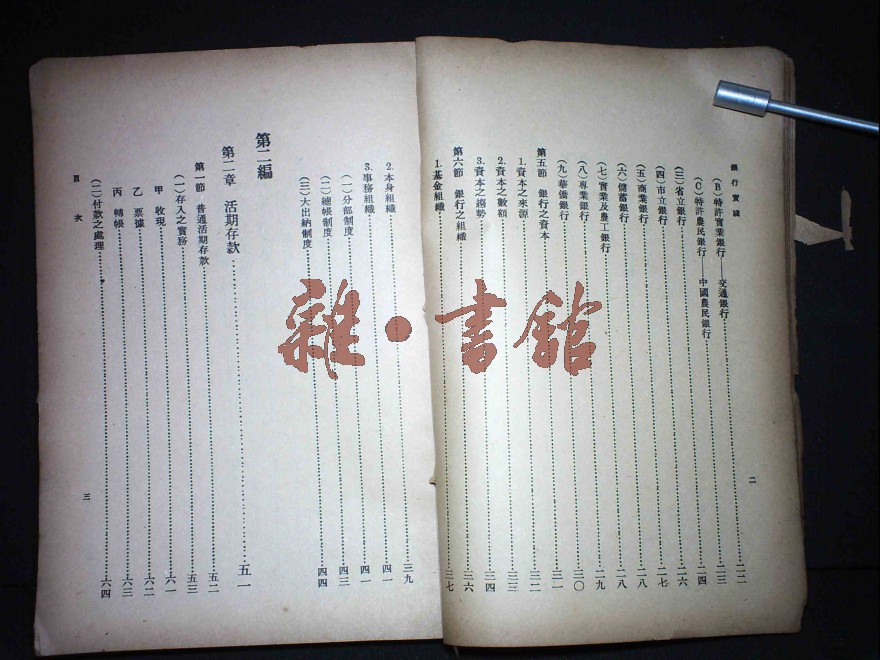 銀行實踐
二
(B)特許實業銀行——交通銀行……二二
(C)特許農民銀行——中國農民銀行……二三
(三)省立銀行……二四
(四)市立銀行……二六
(五)商業銀行……二七
(六)儲蓄銀行……二八
(七)實業及農工銀行……二八
(八)專業銀行……二九
(九)華僑銀行……三〇
第五節 銀行之資本……三一
1.資本之來源……三二
2.資本之數額……三三
3.資本之趨勢……三四
第六節 銀行之組織……三六
1.基金組織……三七
2.本身組織……三九
3.事務組織……四一
(一)分部制度……四一
(二)總帳制度……四三
(三)大出納制度……四四
第二編
第二章 活期存款……五一
第一節 普通活期存款……五二
(一)存入之實務……五三
甲 收現……六一
乙 票據……六二
丙 轉帳……六三
(二)付款之處理……六四
目次
三
雜·書館